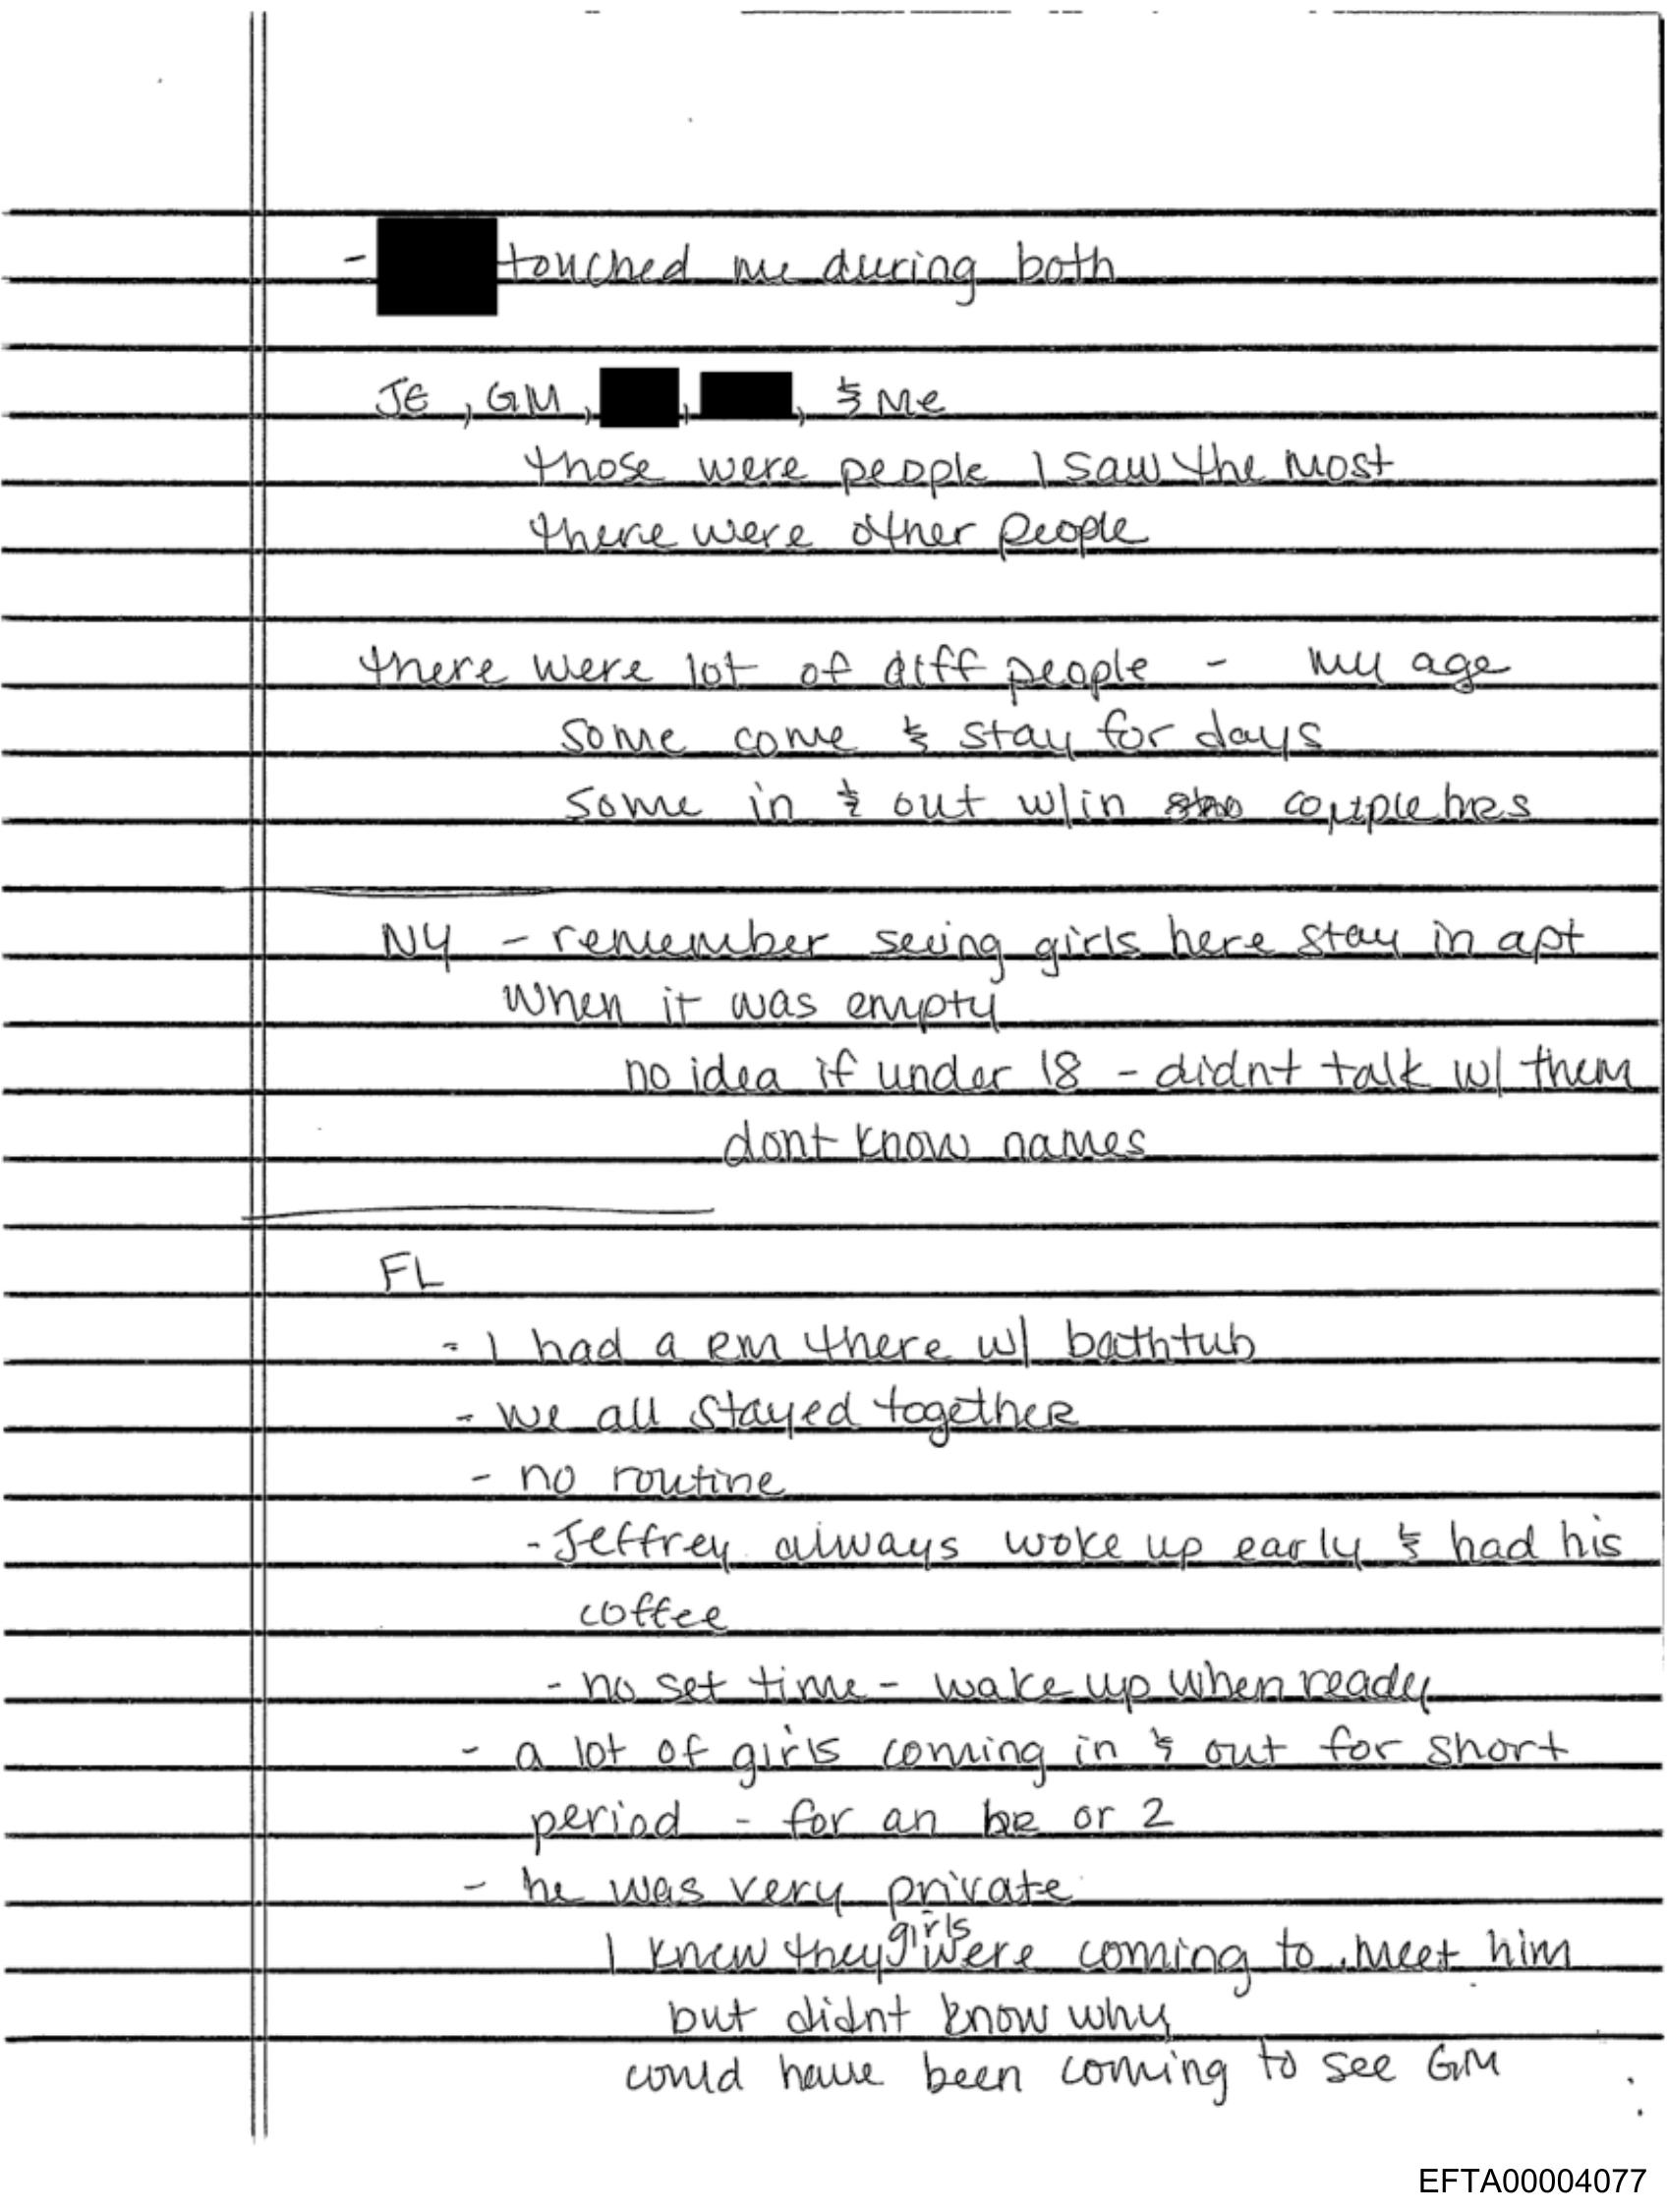 - touched me during both
JE, GM, , , & Me
those were people I saw the most
there were other people
there were lot of diff people - my age
some come & stay for days
some in & out w/in couple hrs
NY - remember seeing girls here stay in apt
when it was empty
no idea if under 18 - didnt talk w/ them
dont know names
FL
- I had a rm there w/ bathtub
- we all stayed together
- no routine
- Jeffrey always woke up early & had his
coffee
- no set time - wake up when ready
- a lot of girls coming in & out for short
period - for an hr or 2
- he was very private
I knew they girls were coming to meet him
but didnt know why
could have been coming to see GM
EFTA00004077